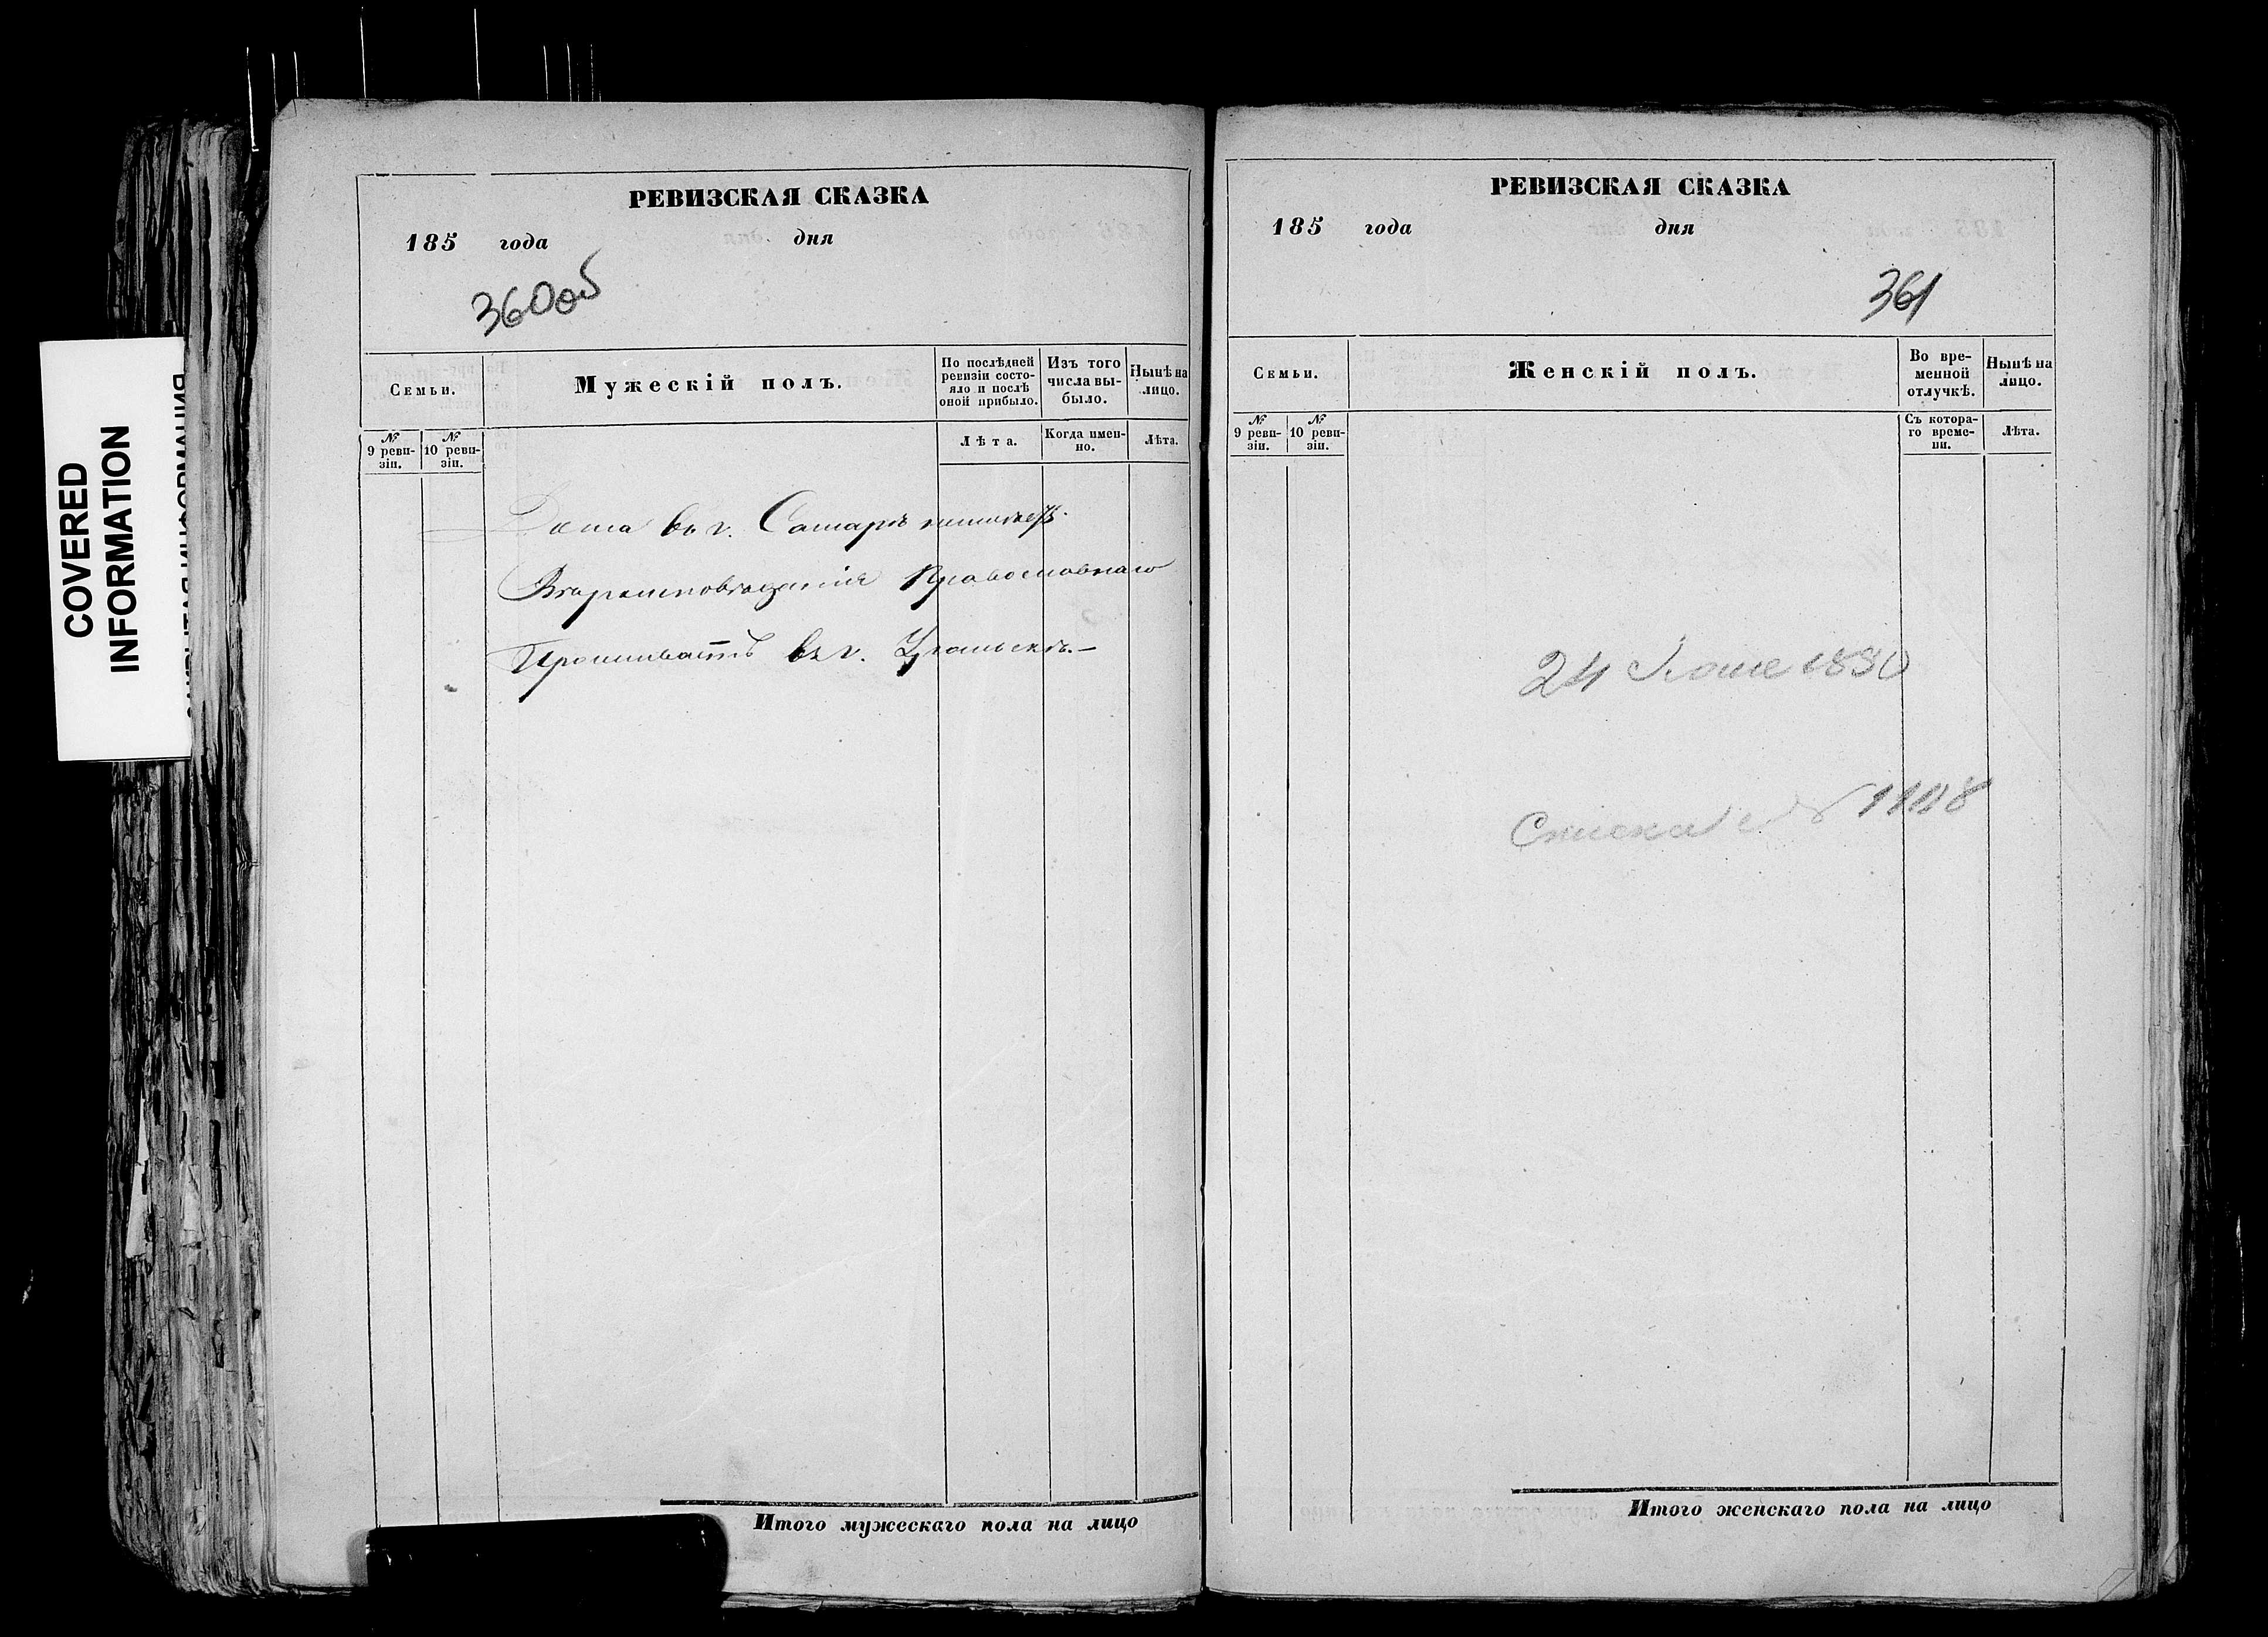 COVERED
INFORMATION
РЕВИЗСКАЯ СКАЗКА
185 года дня
360об
Семьи.
Мужескій полъ.
По послѣдней ревизіи состояло и послѣ оной прибыло.
Изъ того числа выбыло.
Нынѣ на лицо.
№ 9 ревизіи.
№ 10 ревизіи.
Лѣта.
Когда именно.
Лѣта.
Дома въ г. Самарѣ неимѣетъ.
Вѣроисповѣданія Православнаго
Проживаетъ въ г. Уральскѣ.—
Итого мужескаго пола на лицо
РЕВИЗСКАЯ СКАЗКА
185 года дня
361
Семьи.
Женскій полъ.
Во временной отлучкѣ.
Нынѣ на лицо.
№ 9 ревизіи.
№ 10 ревизіи.
Съ котораго времени.
Лѣта.
24 1880
Списка № 1108
Итого женскаго пола на лицо